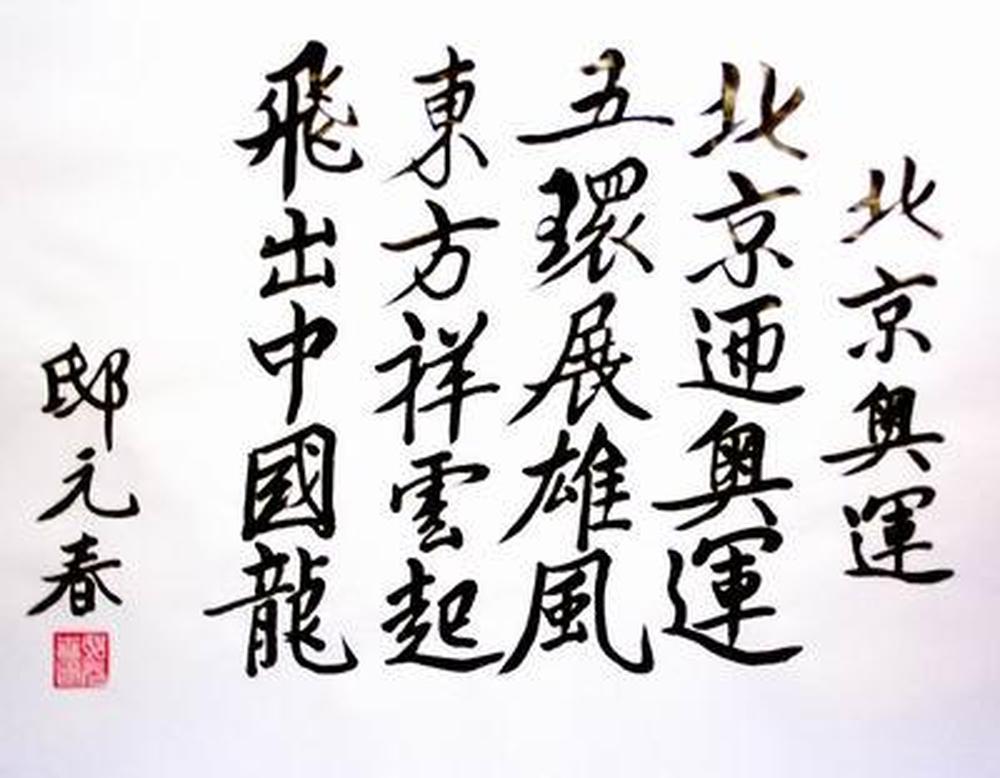 北京奧運
北京迎奧運
五環展雄風
東方祥雲起
飛出中國龍
邸元春